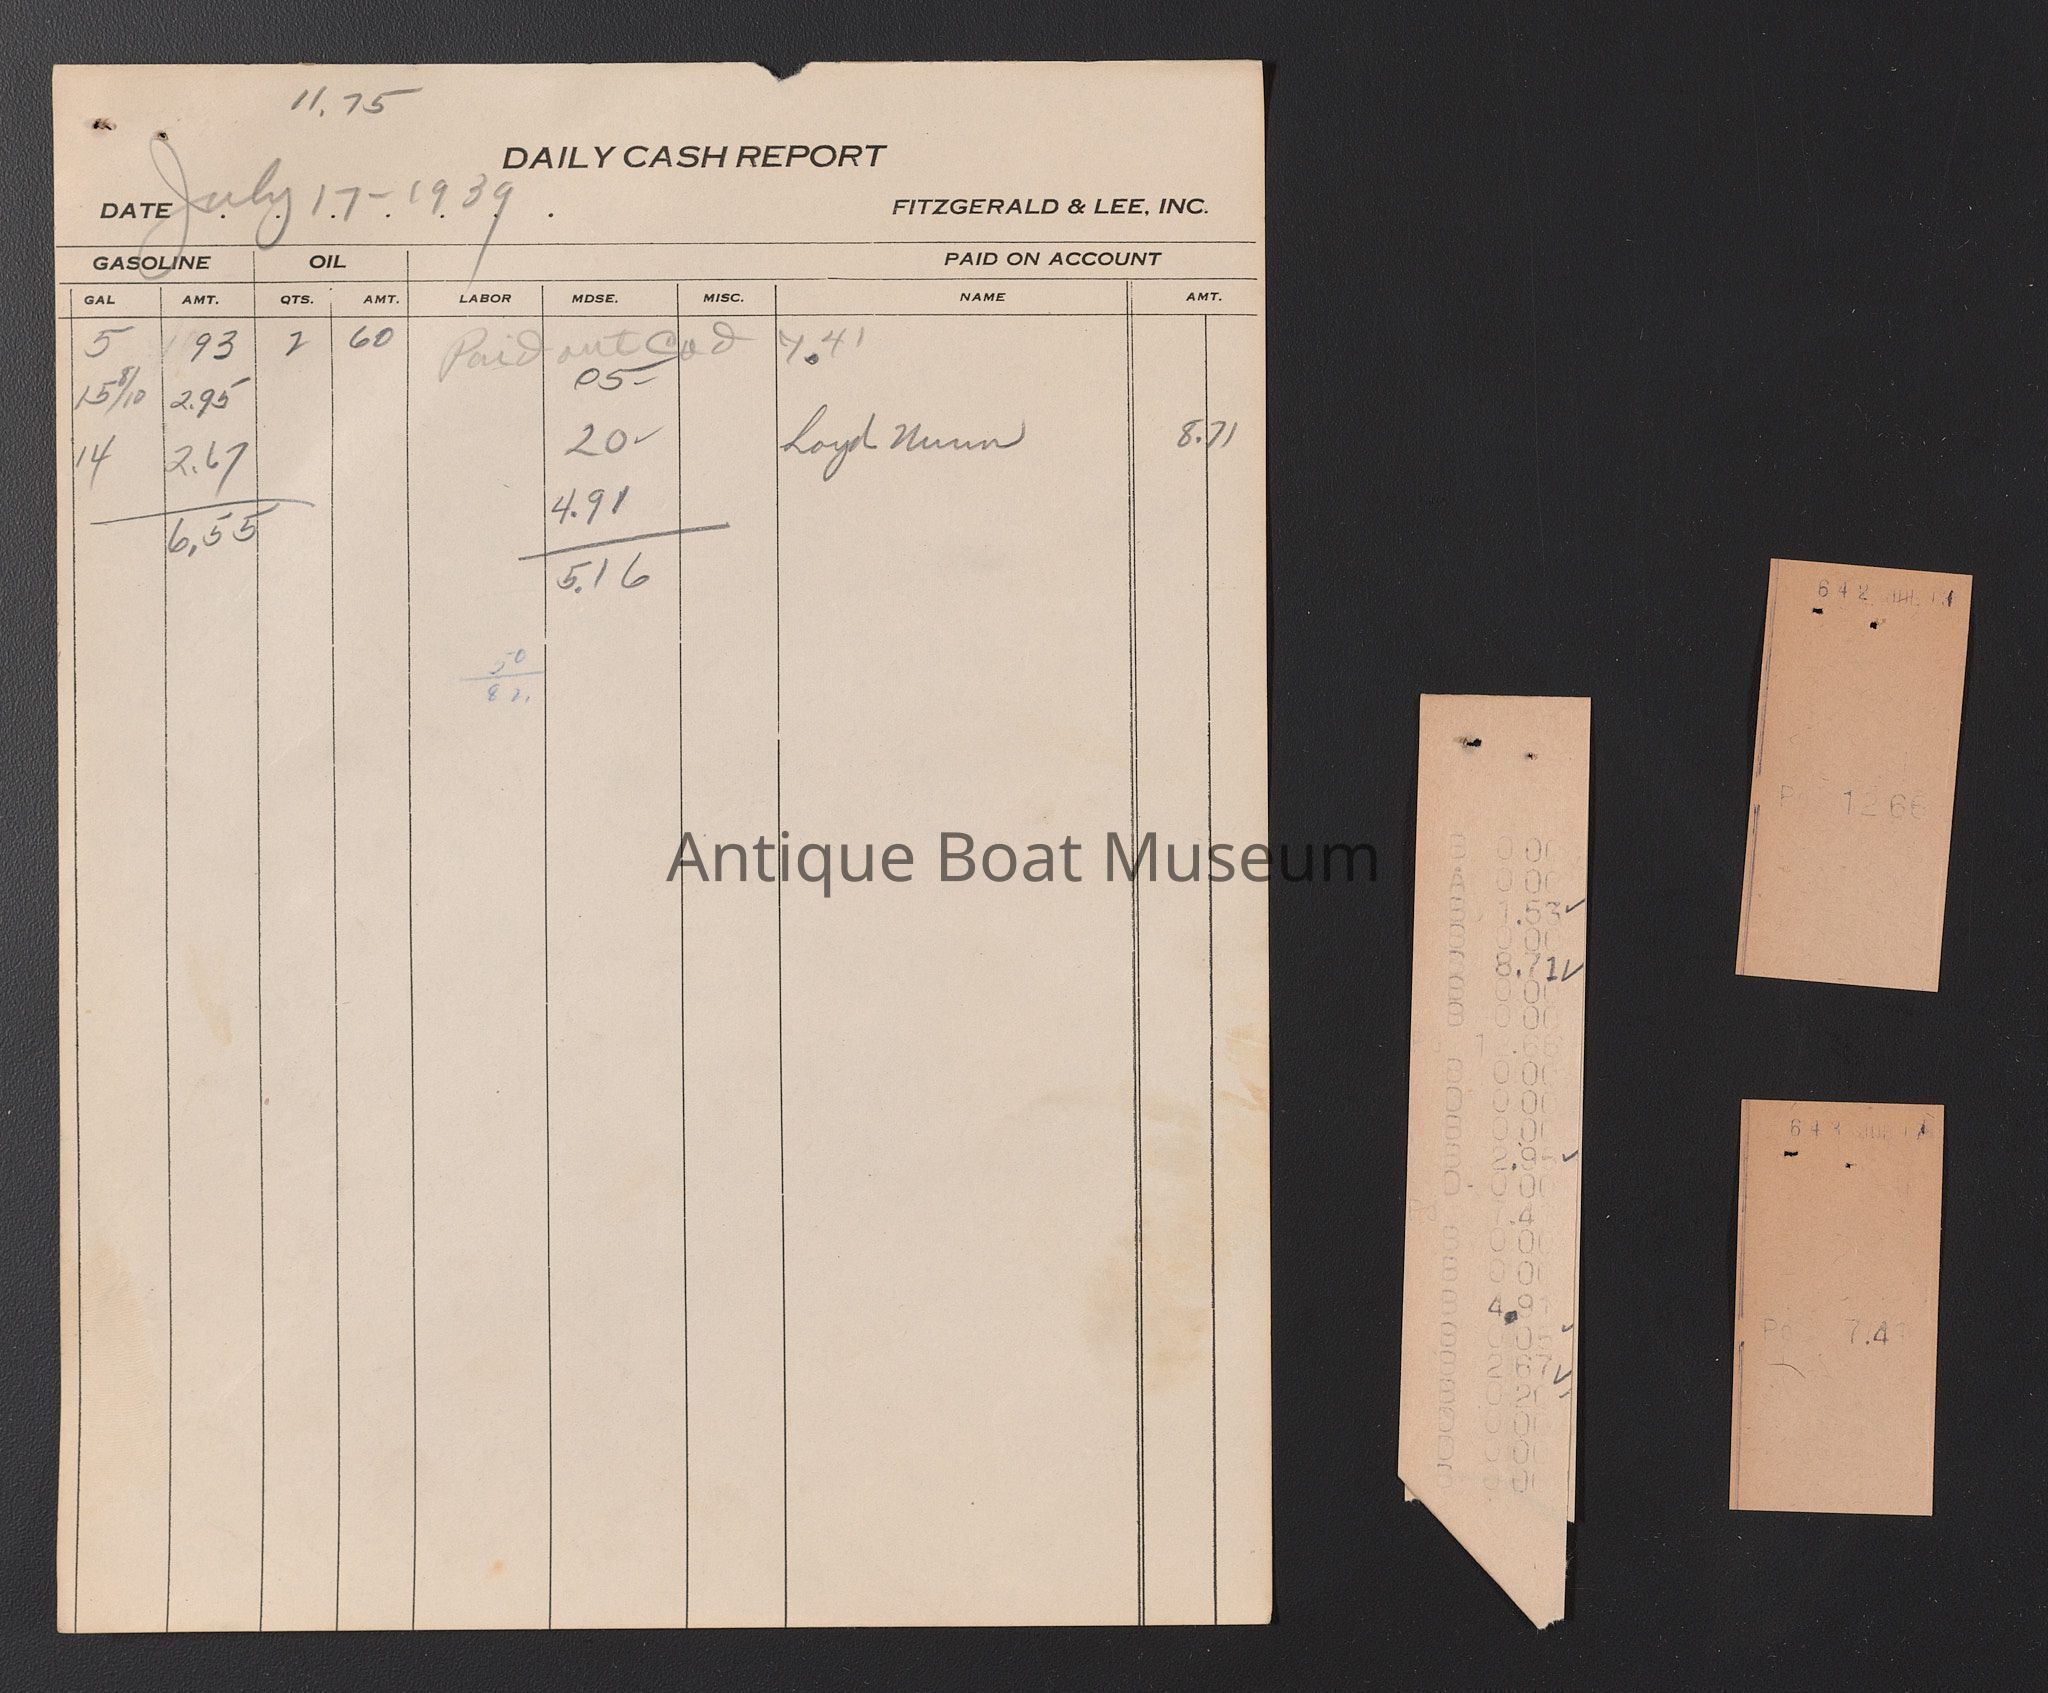 11.75
DAILY CASH REPORT
DATE July 17-1939
FITZGERALD & LEE, INC.
GASOLINE OIL PAID ON ACCOUNT
GAL AMT. QTS. AMT. LABOR MDSE. MISC. NAME AMT.
5 93 2 60 Paid out Cod 7.41
15 8/10 2.95 05
14 2.67 20 Loyd Nunn 8.71
4.91
6.55
5.16
50
82
Antique Boat Museum
0.00
0.00
1.53 ✓
0.00
8.71 ✓
0.00
0.00
0.00
0.00
0.00
2.95 ✓
0.00
7.4
0.00
0.00
4.91
2.67 ✓
0.20
0.00
0.00
0.00
642 JUL 17
1266
JUL 17
Pd 7.41